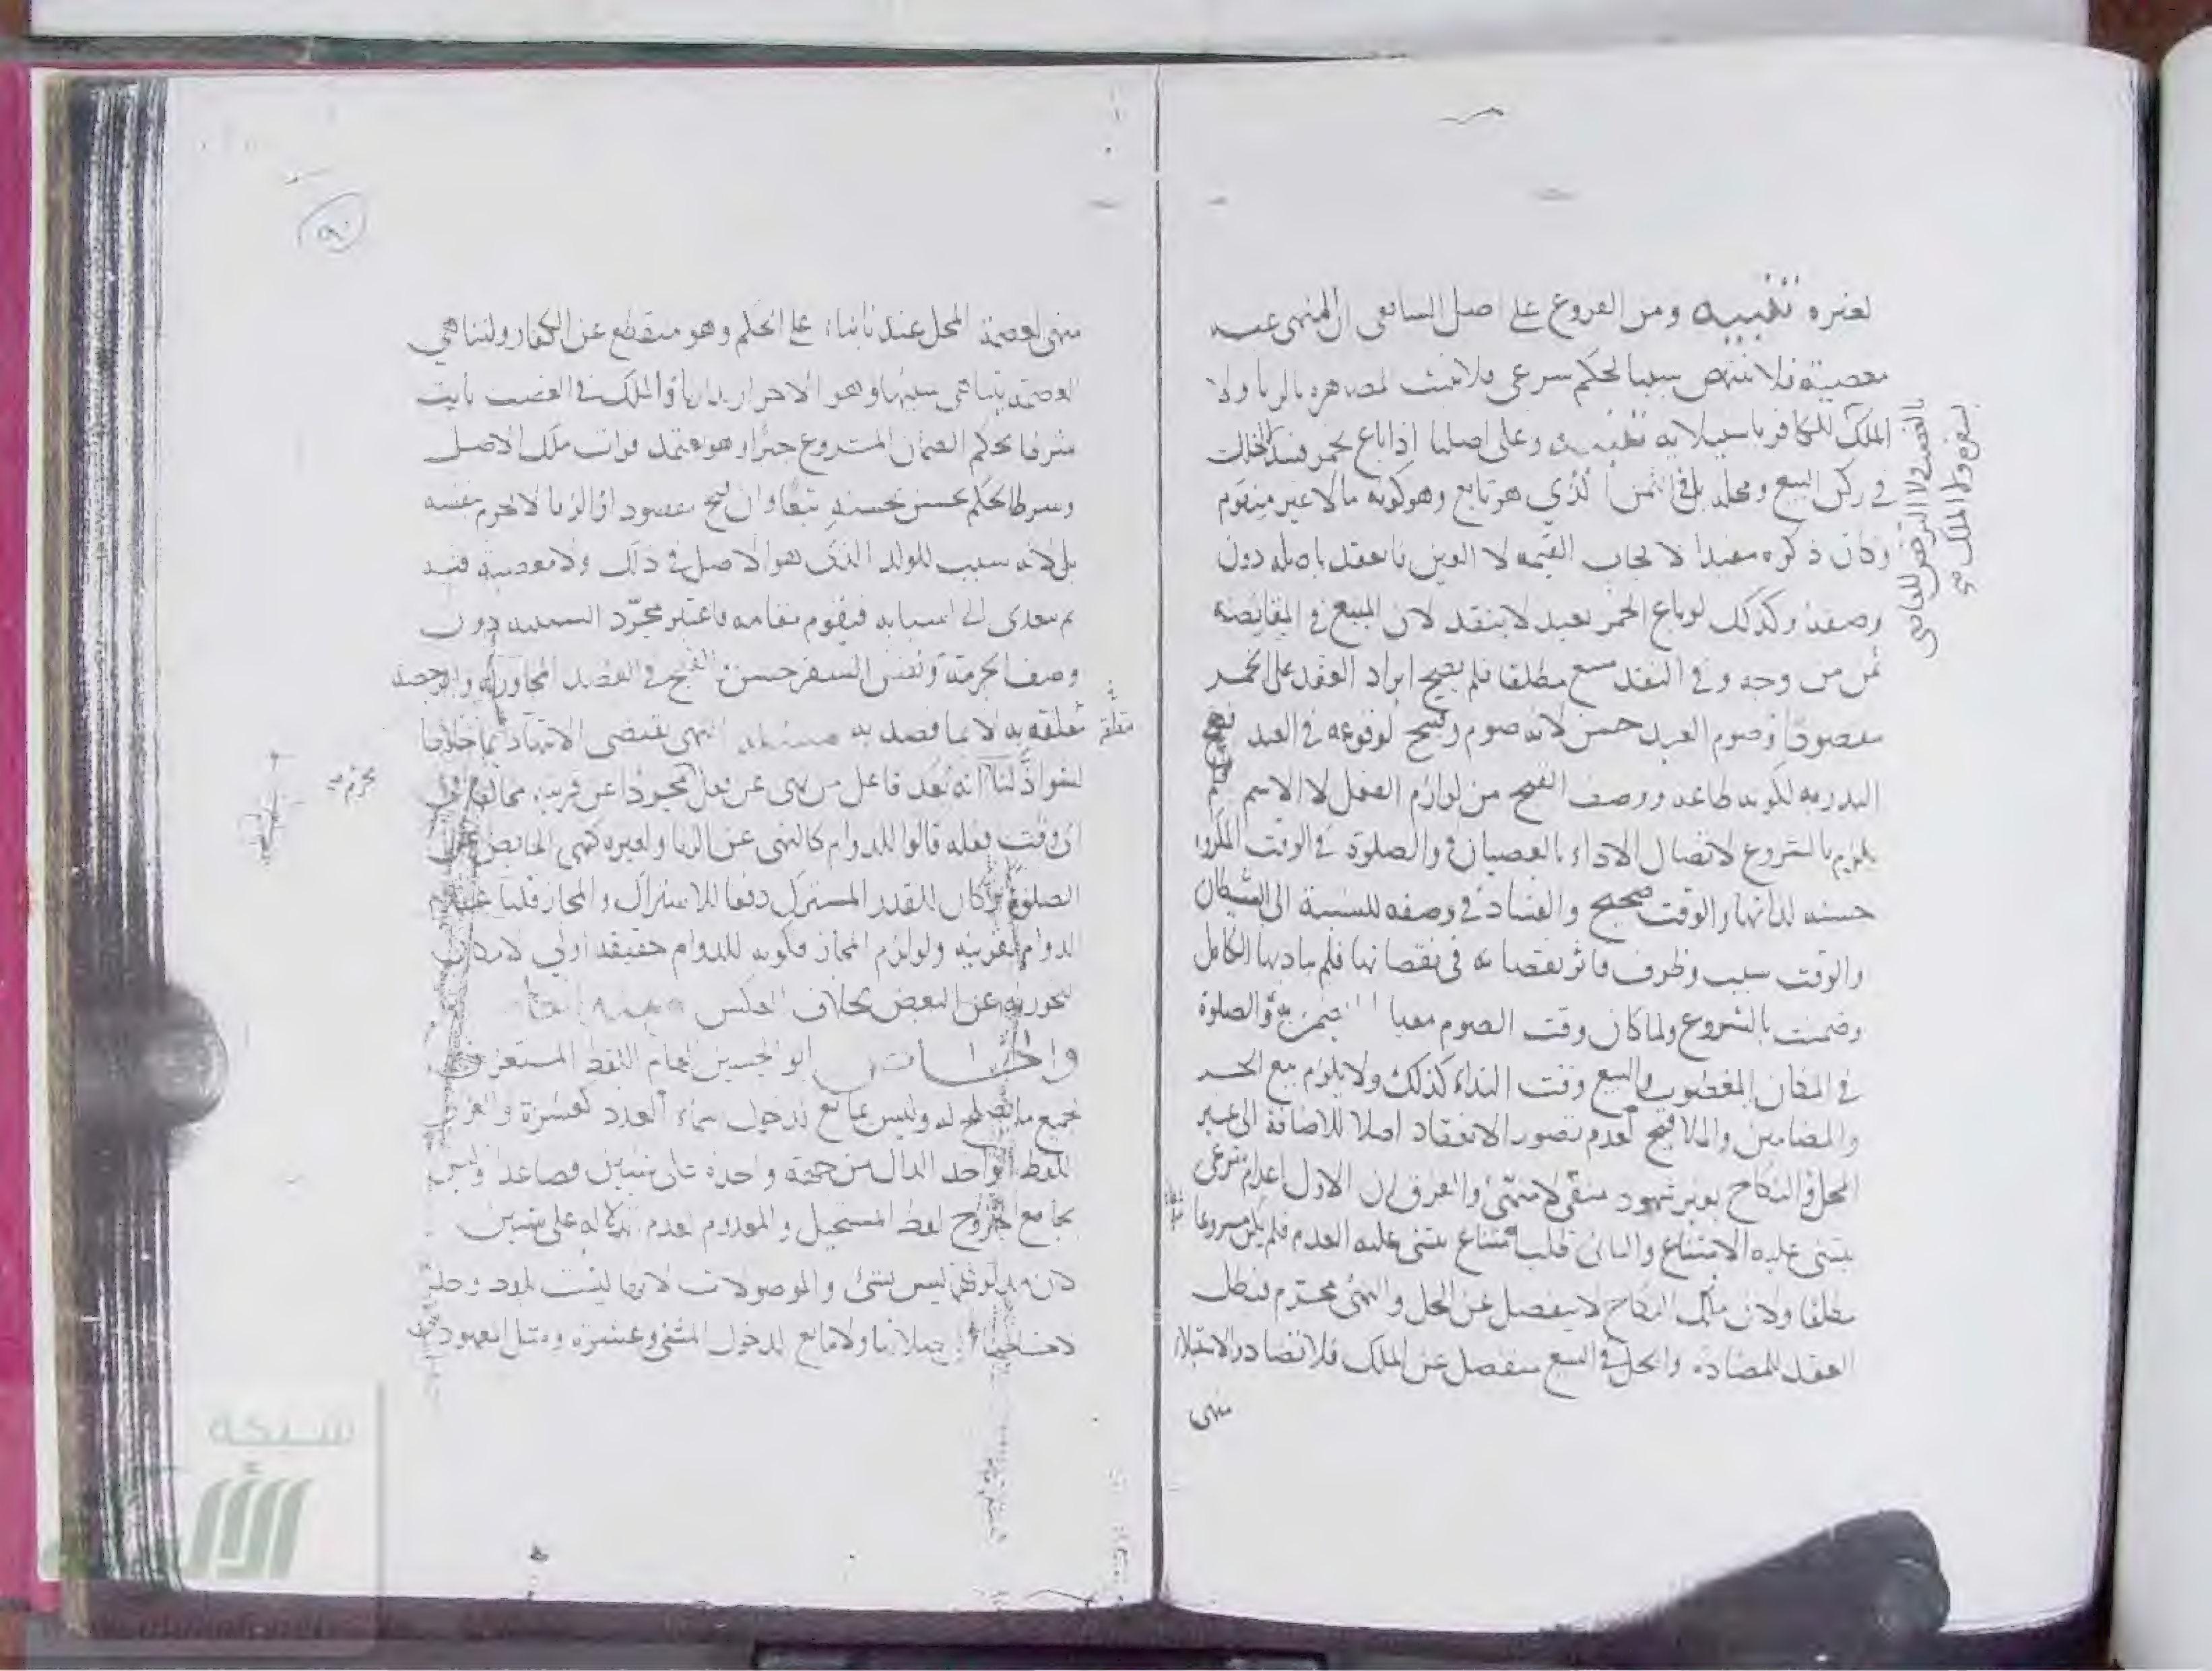 لغيره تنبيه ومن الفروع على اصل الشافعي ان المنهي عنه
معصية فلا ينتهض سببا لحكم شرعي فلا تثبت المصاهرة بالزنا ولا
الملك للكافر باستيلائه تنبيه وعلى اصلنا اذا باع بخمر فسد لا لخلل
في ركن البيع ومحله بل في الثمن الذي هو تابع وهو كونه مالا غير متقوم
وكان ذكره مفيدا لايجاب القيمة لا العين فانعقد باصله دون
وصفه وكذلك لو باع الخمر بعبد لا ينعقد لان المبيع في المقايضة
ثمن من وجه وفي النقد مبيع مطلقا فلم يصح ايراد العقد على الخمر
مقصودا وصوم العيد حسن لانه صوم وقبيح لوقوعه في العيد فصح
النذر به لكونه طاعة ووصف القبح من لوازم الفعل لا الاسم فلم
يلزم بالشروع لاتصال الاداء بالعصيان والصلوة في الوقت المكروه
حسنة لذاتها والوقت صحيح والفساد في وصفه للنسبة الى الشيطان
والوقت سبب وظرف فاثر نقصانه في نقصانها فلم يتأد بها الكامل
وضمنت بالشروع ولما كان وقت الصوم معيارا لم يضمن به والصلوة
في المكان المغصوب والبيع وقت النداء كذلك ولا يلزم بيع الحر
والمضامين والملاقيح لعدم تصور الانعقاد اصلا للاضافة الى غير
المحل والنكاح بغير شهود منفي لا منهي والفرق ان الاول اعدام شرعي
يبتنى عليه الامتناع والثاني طلب امتناع يبتنى عليه العدم فلم يكن مشروعا
مطلقا ولان ملك النكاح لا ينفصل عن الحل والنهي محرم فبطل
العقد للمضادة والحل في البيع منفصل عن الملك فلا تضاد والاستيلاء
منهى
بالغصب ولا الترخص للعاصي
بسفره ولا الملك
٩٠
منهي لعصمة المحل عندنا بناء على الحكم وهو منقطع عن الكفار ولتناهي
العصمة بتناهي سببها وهو الاحراز بدارنا والملك في الغصب ثابت
شرطا لحكم الضمان المشروع جبرا وهو يعتمد فوات ملك الاصل
وشرط الحكم حسن بحسنه تبعا وان قبح مقصودا والزنا لا يحرم بنفسه
بل لانه سبب للولد الذي هو الاصل في ذلك ولا معصية فيه
ثم تعدى الى اسبابه فيقوم مقامه فاعتبر مجرد السببية دون
وصف الحرمة ونفس السفر حسن والقبح في القصد المجاور له والرخصة
متعلقة به لا بما قصد به مسئلة النهي يقتضي الانتهاء دائما خلافا
لشواذ لنا انه يعد فاعل من نهي عن فعل مجردا عن قرينة مخالفا في
اي وقت فعله قالوا للدوام كالنهي عن الزنا ولغيره كنهي الحائض عن
الصلوة فكان للقدر المشترك دفعا للاشتراك والمجاز قلنا عدم
الدوام لقرينة ولو لزم المجاز فكونه للدوام حقيقة اولى لامكان
التجوز به عن البعض بخلاف العكس
والخاص ابو الحسين العام اللفظ المستغرق
لجميع ما يصلح له وليس بمانع لدخول اسماء العدد كعشرة والغزالي
اللفظ الواحد الدال من جهة واحدة على شيئين فصاعدا وليس
بجامع لخروج لفظ المستحيل والمعدوم لعدم دلالته على شيئين
لان مدلولهما ليس بشئ والموصولات لانها ليست بلفظ واحد
ولا مانع لدخول المثنى وعشرة ومثل المعهود